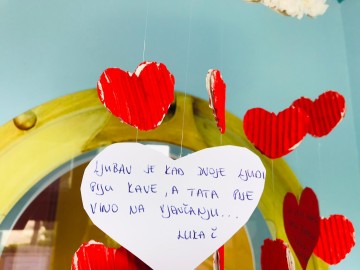 LJUBAV JE KAD DVOJE LJUDI
PIJU KAVE, A TATA PIJE
VINO NA VJENČANJU...
LUKA Č